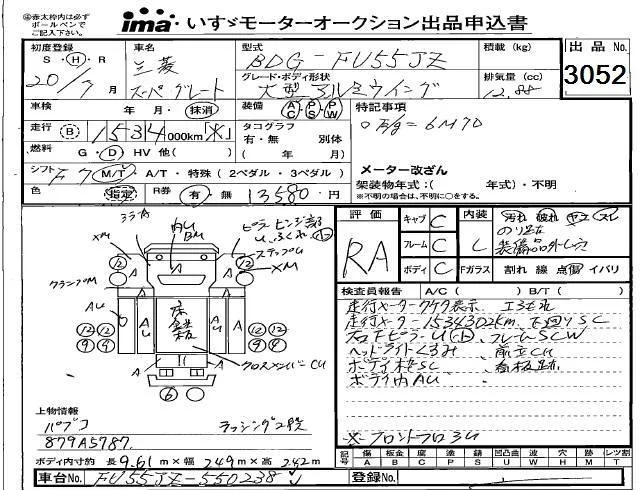 ※赤太枠内は必ず
ボールペンで
ご記入下さい。
ima いすゞモーターオークション出品申込書
初度登録 車名 型式 積載(kg) 出品No.
S・H・R 三菱 BDG-FU55JZ 3052
20/7月 スーパーグレート グレード・ボディ形状 排気量(cc)
大型アルミウイング 12.88
車検 年 月・抹消 装備 AC・PS・PW 特記事項
走行 B 1534000km タコグラフ 6M70
有・無 別体
燃料 G・D HV 他( ) ( 年 月)
シフト F7 M/T・A/T・特殊(2ペダル・3ペダル) メーター改ざん
架装物年式:( 年式)・不明
色 指定 R券 有・無 13580円 ※不明の場合は、不明に○をする。
評価 キャブ C 内装 汚れ 破れ ヤニ スレ
RA フレーム C L のり足を
装備品外し穴
ボディ C Fガラス 割れ 線 点傷 イバリ
検査員報告 A/C( ) B/T( )
走行メーター ケタ表示
走行メーター1534302km 下回りSC
右下ピラーU フレームSCW
ヘッドライトくるみ 前立CU
ボディ枠SC 看板跡
ボディ内AU
※フロントフロ3U
コラーA
内U
BM
ピラーヒンジ部
U
XM
ステップU
XM
クランプM
AU
A
A
U
A
U
A
床
鉄
板
12
12
12
9
12
9
12
4
12
4
クロスメンバーCU
A
A
A
6
上物情報
パブコ ラッシング2段
879A5787.
ボディ内寸約 長9.61m×幅2.49m×高2.42m
記号 傷A 板金B 腐C 塗P 錆S 凹凸曲U 波W 穴H 跡M レT
車台No. FU55JZ-550238 登録No.